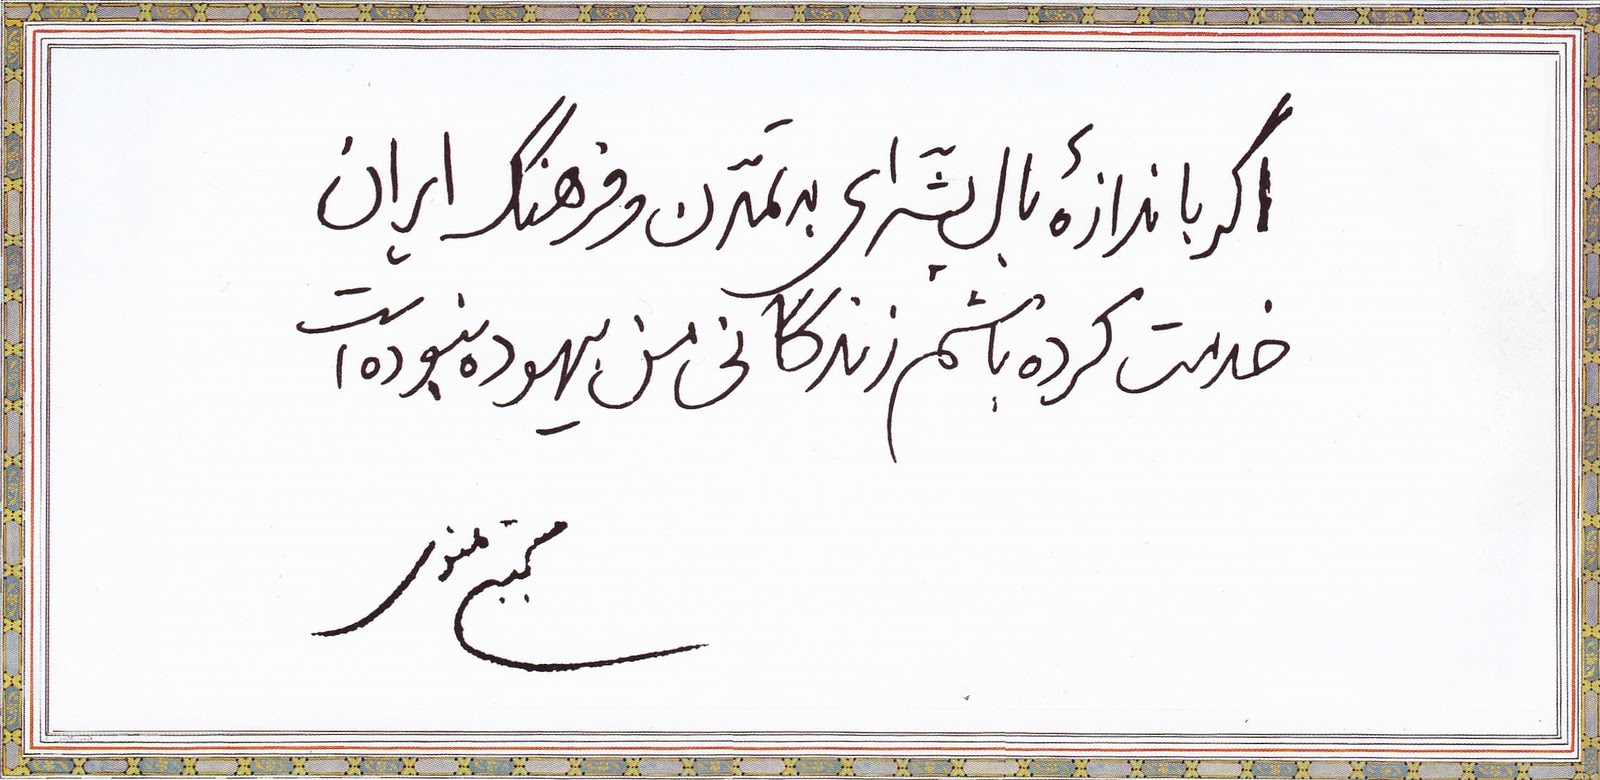 اگر باندازهٔ بال پشّه‌ای به تمدّن و فرهنگ ایران
خدمت کرده باشم زندگانی من بیهوده نبوده است
مجتبی مینوی